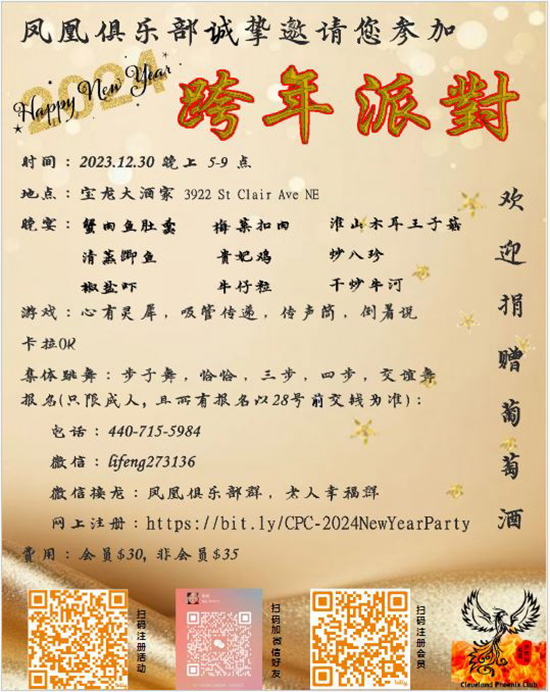 凤凰俱乐部诚挚邀请您参加
2024
Happy New Year
跨年派對
时间：2023.12.30 晚上 5-9 点
地点：宝龙大酒家 3922 St Clair Ave NE
晚宴：蟹肉鱼肚羹 梅菜扣肉 淮山木耳王子菇
清蒸鲫鱼 贵妃鸡 炒八珍
椒盐虾 牛仔粒 干炒牛河
游戏：心有灵犀，吸管传递，传声筒，倒着说
卡拉OK
集体跳舞：步子舞，恰恰，三步，四步，交谊舞
报名(只限成人，且所有报名以28号前交钱为准)：
电话：440-715-5984
微信：lifeng273136
微信接龙：凤凰俱乐部群，老人幸福群
网上注册：https://bit.ly/CPC-2024NewYearParty
费用：会员$30, 非会员$35
欢迎捐赠葡萄酒
扫码注册活动
扫码加微信好友
扫码注册会员
Cleveland Phoenix Club